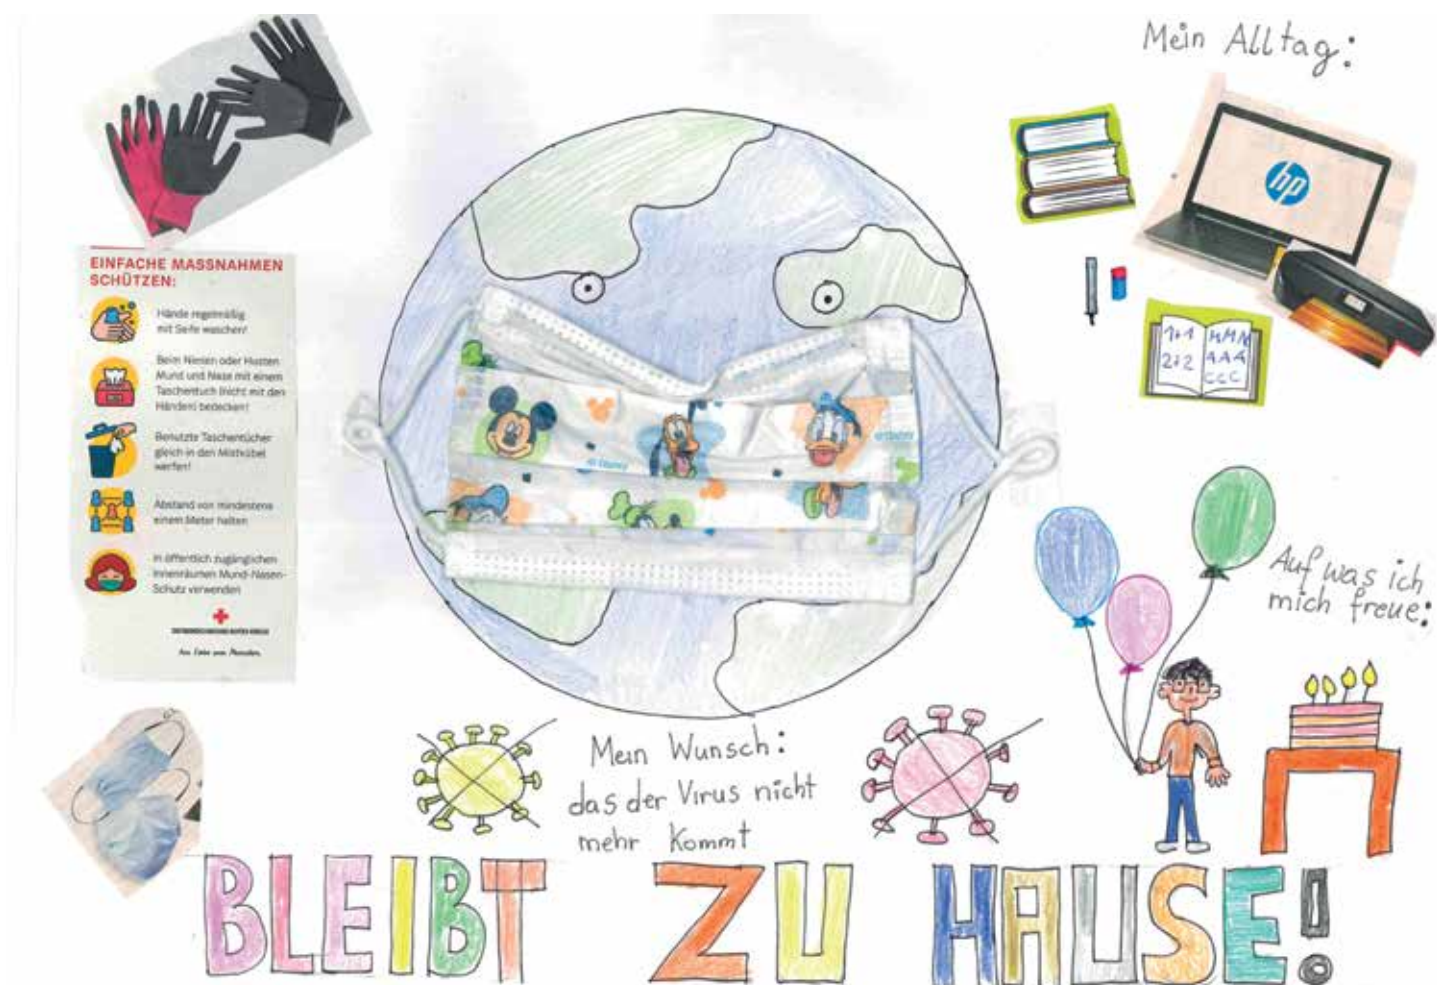 Mein Alltag:
hp
EINFACHE MASSNAHMEN
SCHÜTZEN:
Hände regelmäßig
mit Seife waschen!
Beim Niesen oder Husten
Mund und Nase mit einem
Taschentuch (nicht mit den
Händen) bedecken!
Benutzte Taschentücher
gleich in den Mistkübel
werfen!
Abstand von mindestens
einem Meter halten
In öffentlich zugänglichen
Innenräumen Mund-Nasen-
Schutz verwenden
ÖSTERREICHISCHES ROTES KREUZ
Aus Liebe zum Menschen.
1+1
2+2
MMM
AAA
CCC
© Disney
© Disney
Auf was ich
mich freue:
Mein Wunsch:
das der Virus nicht
mehr kommt
BLEIBT ZU HAUSE!